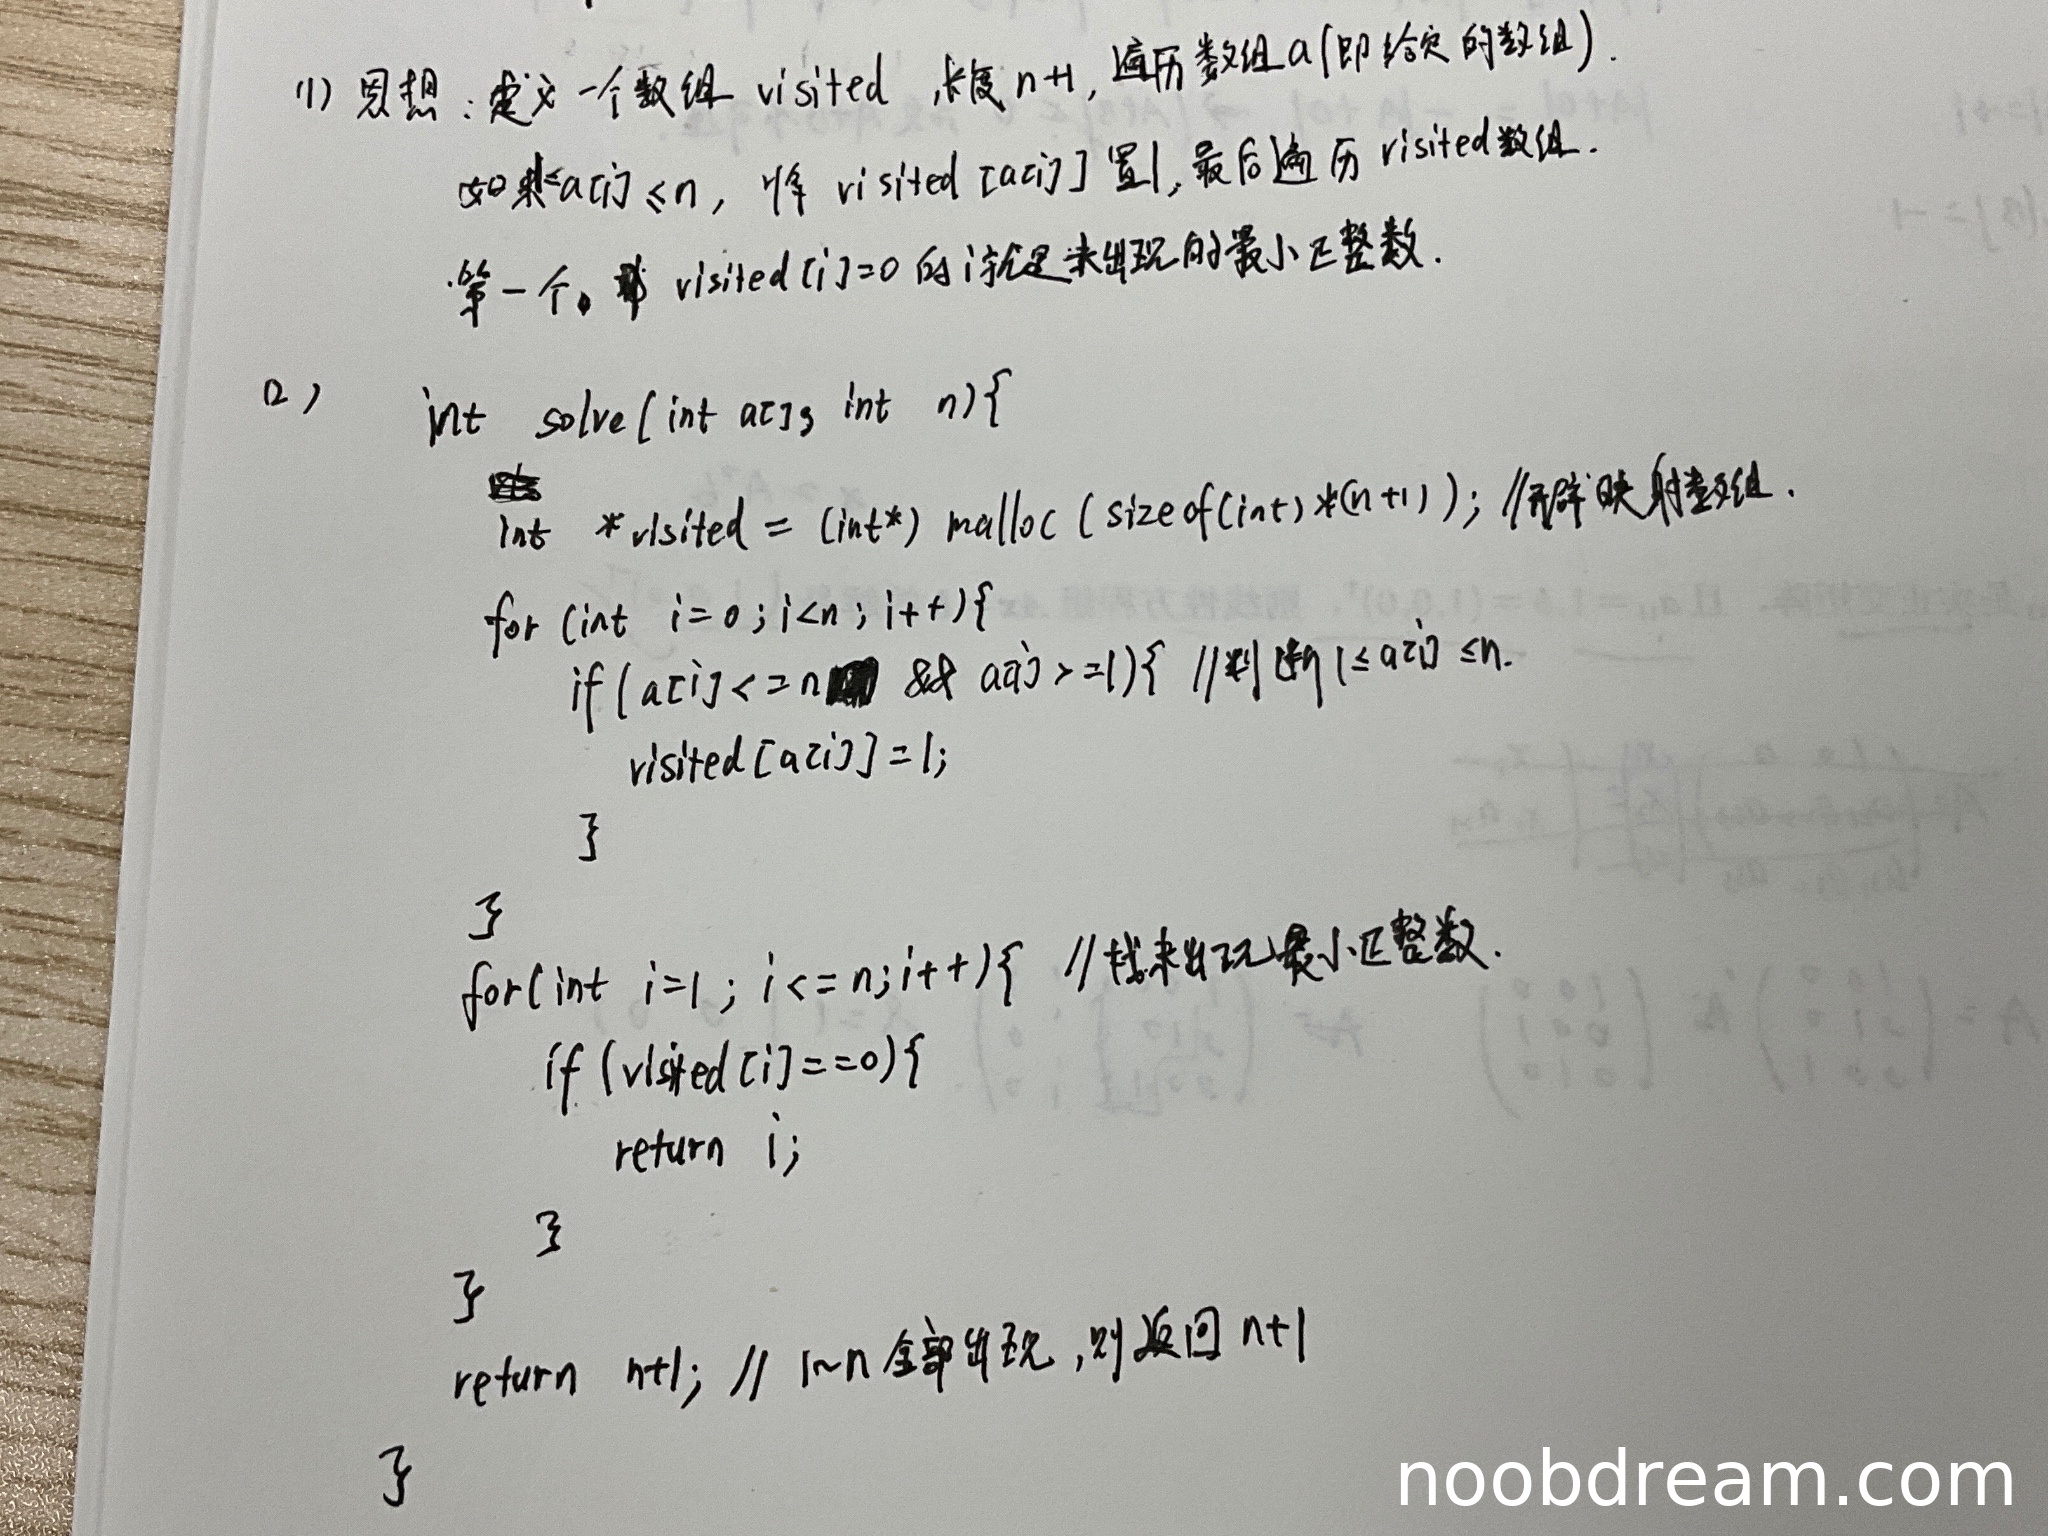 (1) 思想：定义一个数组 visited ，长度 n+1，遍历数组a(即给定的数组).
如果1≤a[i]≤n，将 visited[a[i]]置1，最后遍历 visited数组.
第一个 visited[i]=0 的i就是未出现的最小正整数.
(2) int solve(int a[], int n){
int *visited = (int*) malloc (sizeof(int)*(n+1)); //开辟映射数组.
for (int i=0; i<n; i++){
if (a[i]<=n && a[i]>=1){ //判断1≤a[i]≤n.
visited[a[i]]=1;
}
}
for(int i=1; i<=n; i++){ //找未出现最小正整数.
if (visited[i]==0){
return i;
}
}
return n+1; // 1~n全部出现，则返回 n+1
}
noobdream.com